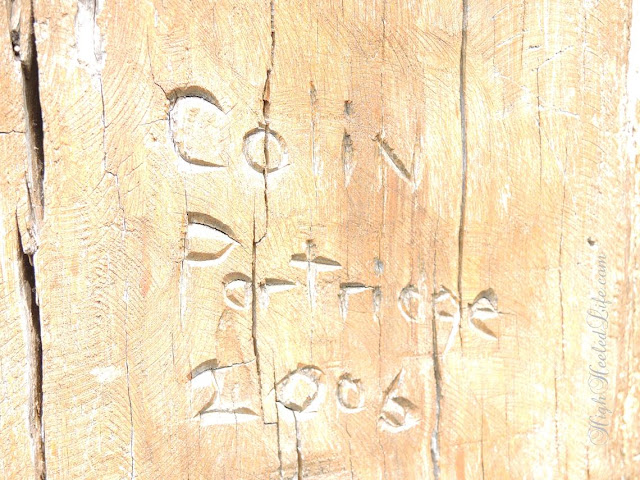 Colin
Partridge
2006
HighHeeledLife.com